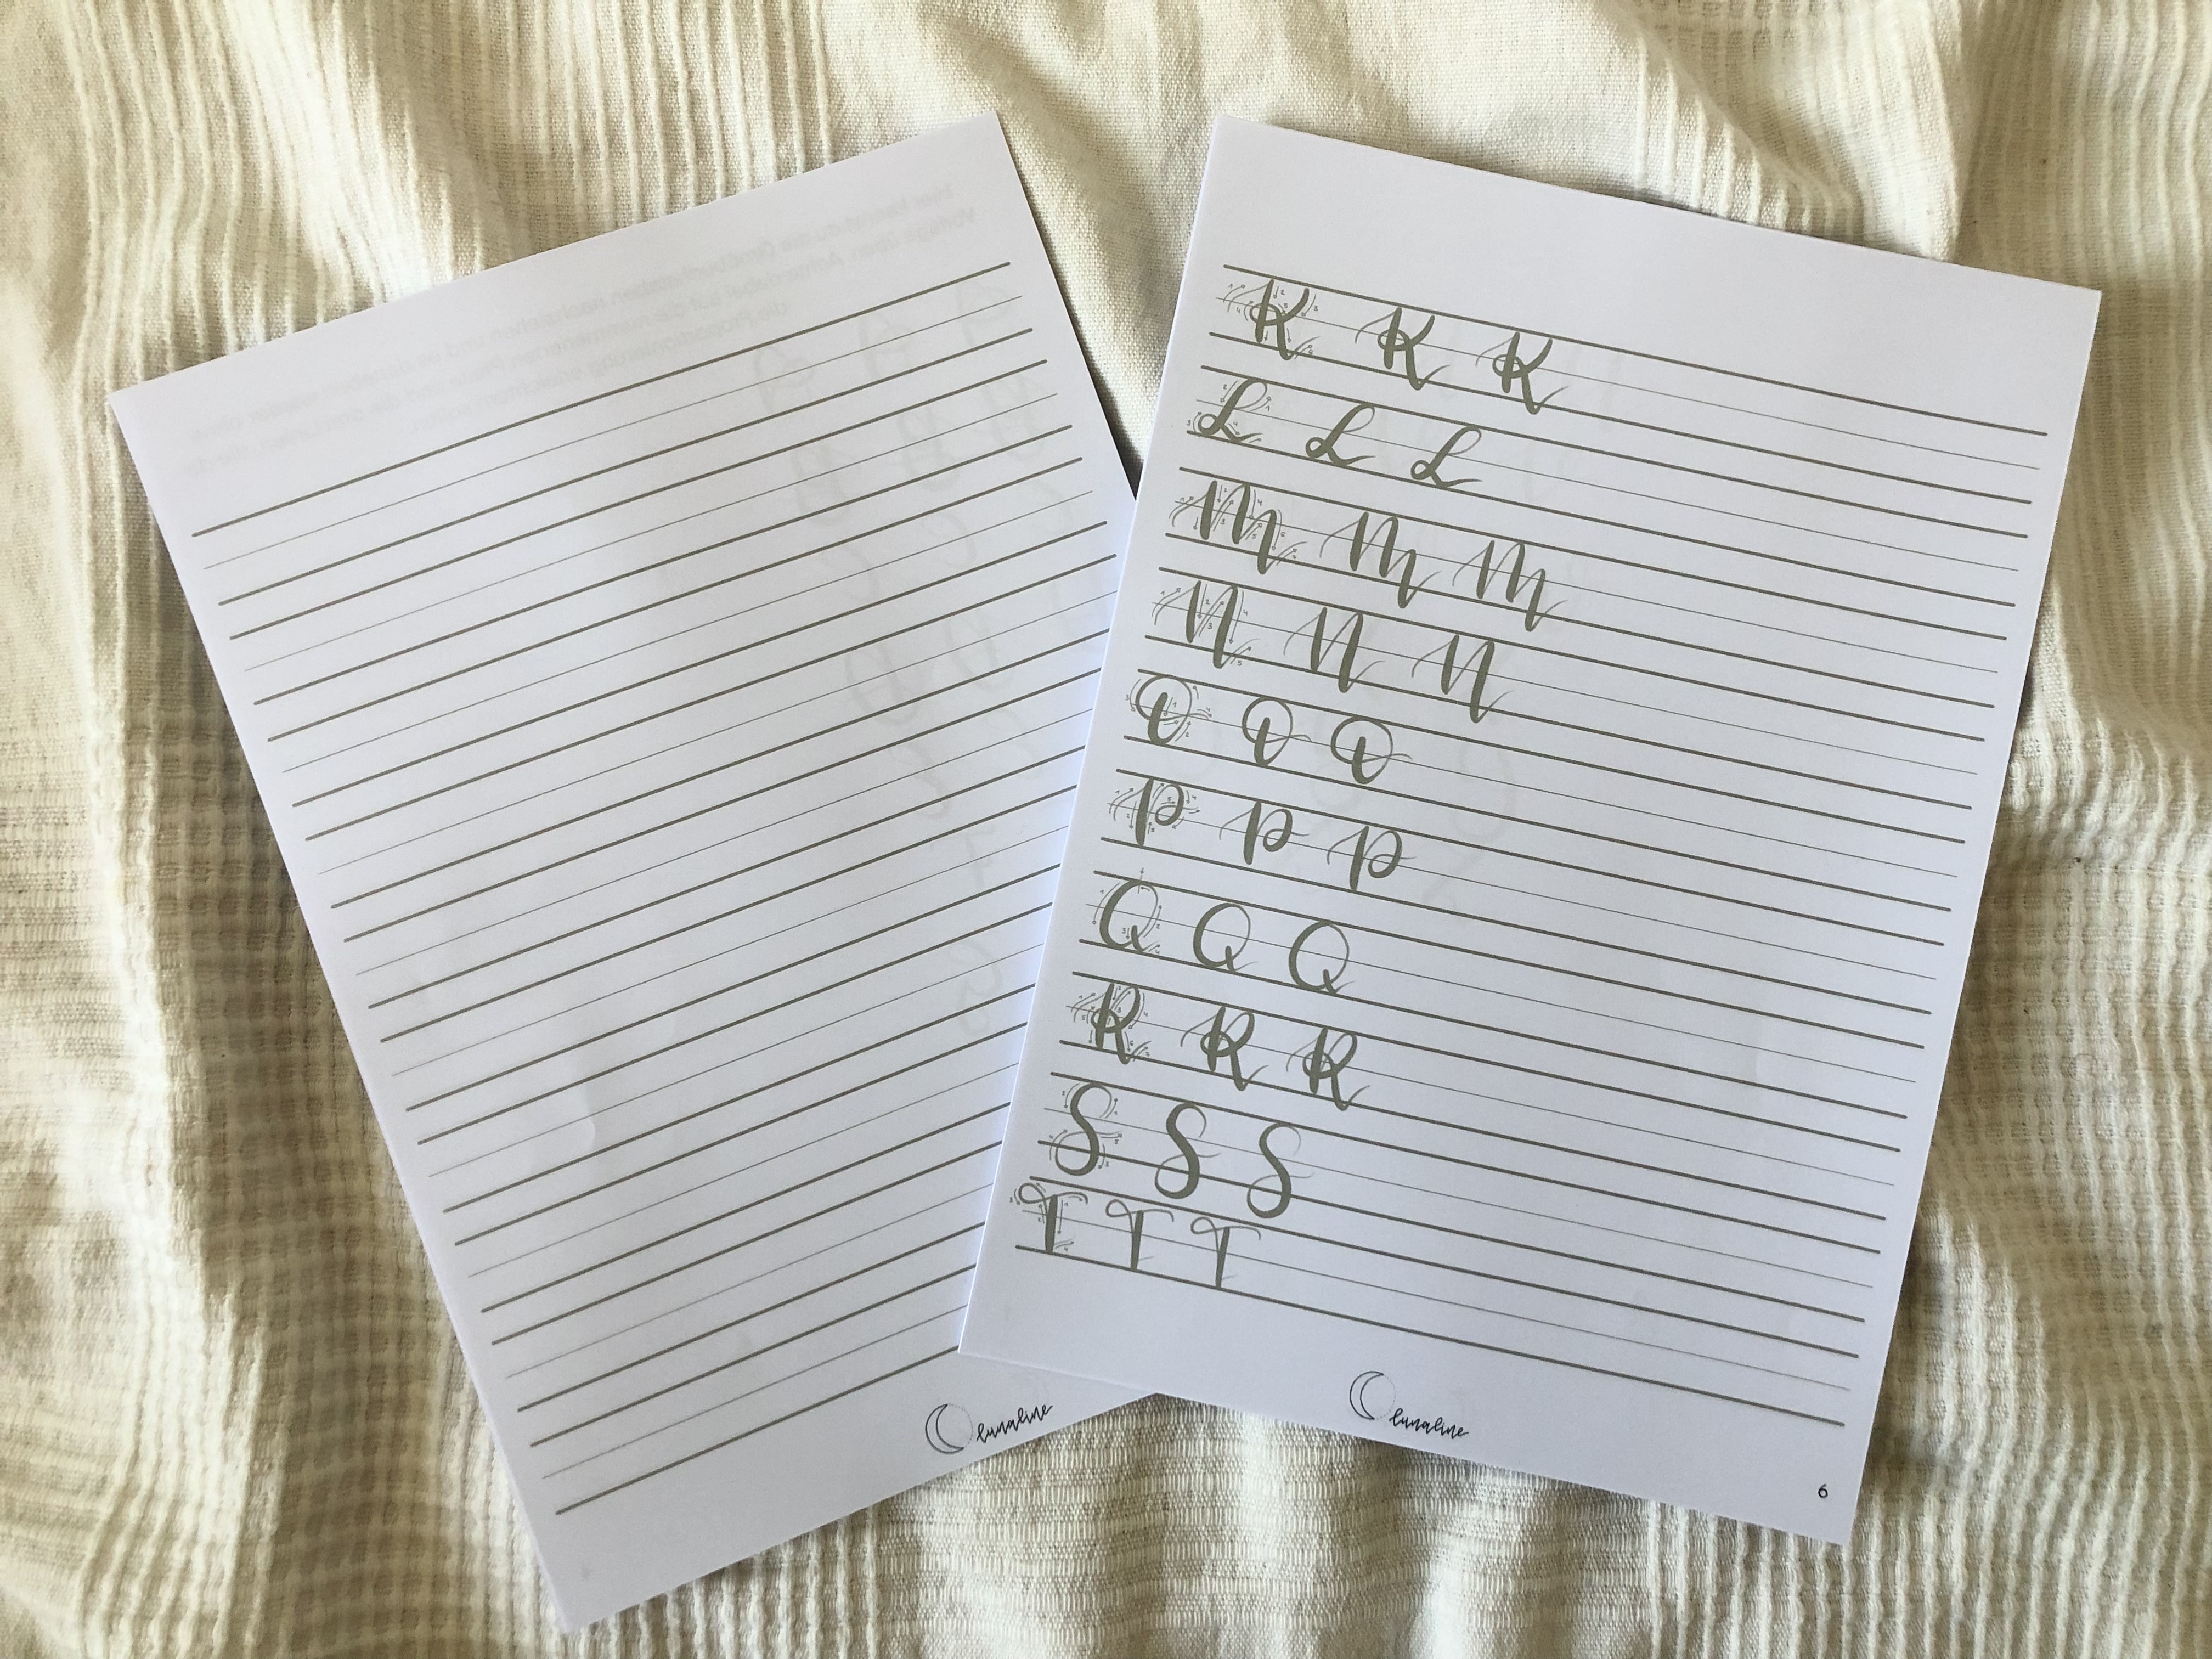 lunaline
K K K
L L L
M M M
N N N
O O O
P P P
Q Q Q
R R R
S S S
T T T
lunaline
6